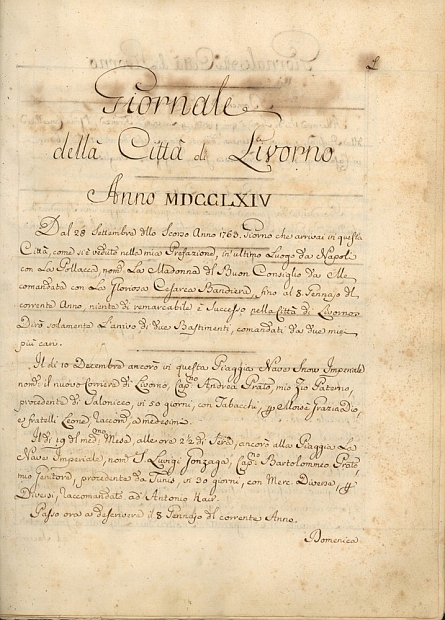 Giornale
della Città di Livorno
Anno MDCCLXIV
Dal 28 Settembre dllo Scorso Anno 1763. Giorno che arrivai in questa
Città, come si è veduto nella mia Prefazione, in ultimo Luogo da Napoli
con La Pollacca, nom.ta La Madonna del Buon Consiglio da Me
comandata con La Gloriosa Cesarea Bandiera, fino al 8 Gennajo dl
corrente Anno, niente di remarcabile è Successo nella Città di Livorno.
Dirò solamente L'arrivo di due Bastimenti, comandati da due miei
più cari.
Il dì 10 Decembre ancorò in questa Piaggia Nave Snow Imperiale
nom.ta il nuovo Corriere di Livorno, Cap.no Andrea Prato, mio Zio Paterno,
procedente di Salonicco, in 50 giorni, con Tabacchi, Moisè Graziadio,
e fratelli Leone, raccom. a medesimi.
Il dì 19 del med.mo Mese, alle ore 22 di Sera, ancorò alla Piaggia La
Nave Imperiale, nom.ta S. Luigi Gonzaga, Cap.no Bartolommeo Prato,
mio Genitore, procedente da Tunis, in 30 giorni, con Merc. Diverse,
Diversi, raccomandato ad Antonio
Passo ora a descrivere il 8 Gennajo dl corrente Anno.
Domenica